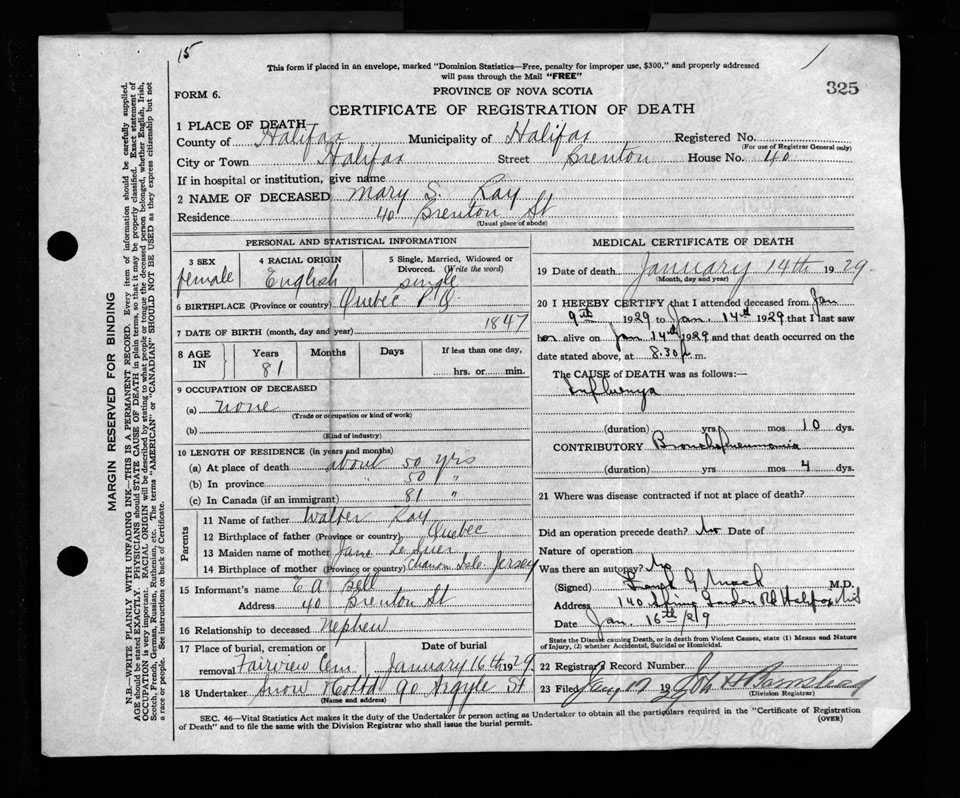 15
This form if placed in an envelope, marked "Dominion Statistics—Free, penalty for improper use, $300," and properly addressed
will pass through the Mail "FREE"
325
FORM 6.
PROVINCE OF NOVA SCOTIA
CERTIFICATE OF REGISTRATION OF DEATH
1 PLACE OF DEATH
County of Halifax Municipality of Halifax Registered No.
(For use of Registrar General only)
City or Town Halifax Street Brenton House No. 40
If in hospital or institution, give name
2 NAME OF DECEASED Mary S. Ray
Residence 40 Brenton St
(Usual place of abode)
PERSONAL AND STATISTICAL INFORMATION
3 SEX female
4 RACIAL ORIGIN English
5 Single, Married, Widowed or Divorced. (Write the word) single
6 BIRTHPLACE (Province or country) Quebec P.Q.
7 DATE OF BIRTH (month, day and year) 1847
8 AGE IN Years 81 Months Days If less than one day, hrs. or min.
9 OCCUPATION OF DECEASED
(a) none
(Trade or occupation or kind of work)
(b)
(Kind of industry)
10 LENGTH OF RESIDENCE (in years and months)
(a) At place of death about 50 yrs
(b) In province " 50 "
(c) In Canada (if an immigrant) 81 "
Parents
11 Name of father Walter Ray
12 Birthplace of father (Province or country) Quebec
13 Maiden name of mother Jane
14 Birthplace of mother (Province or country) Isle Jersey
15 Informant's name E A Bell
Address 40 Brenton St
16 Relationship to deceased Nephew
17 Place of burial, cremation or removal Fairview Cem
Date of burial January 16th 1929
18 Undertaker Snow & Co Ltd 90 Argyle St
(Name and address)
MEDICAL CERTIFICATE OF DEATH
19 Date of death January 14th 1929.
(Month, day and year)
20 I HEREBY CERTIFY that I attended deceased from Jan
9th 1929 to Jan. 14th 1929 that I last saw
her alive on Jan 14th 1929 and that death occurred on the
date stated above, at 8.30 p.m.
The CAUSE OF DEATH was as follows:—
Influenza
(duration) yrs mos 10 dys.
CONTRIBUTORY Bronchopneumonia
(duration) yrs mos 4 dys.
21 Where was disease contracted if not at place of death?
Did an operation precede death? No Date of
Nature of operation
Was there an autopsy? No
(Signed) G. Mack M.D.
Address 140 Spring Garden Rd Halifax N.S
Date Jan. 16th/29
State the Disease causing Death, or in death from Violent Causes, state (1) Means and Nature
of Injury, (2) whether Accidental, Suicidal or Homicidal.
22 Registrar's Record Number
23 Filed Jany 17 19
(Division Registrar)
SEC. 46—Vital Statistics Act makes it the duty of the Undertaker or person acting as Undertaker to obtain all the particulars required in the "Certificate of Registration
of Death" and to file the same with the Division Registrar who shall issue the burial permit.
(OVER)
MARGIN RESERVED FOR BINDING
N.B.—WRITE PLAINLY WITH UNFADING INK—THIS IS A PERMANENT RECORD. Every item of information should be carefully supplied.
AGE should be stated EXACTLY. PHYSICIANS should STATE CAUSE OF DEATH in plain terms, so that it may be properly classified. Exact statement of
OCCUPATION is very important. RACIAL ORIGIN will be described by stating to what people or tongue the deceased person belonged, whether English, Irish,
Scotch, French, German, Russian, Ruthenian, etc. The terms "AMERICAN" or "CANADIAN" SHOULD NOT BE USED as they express citizenship but not
a race or people. See instructions on back of Certificate.